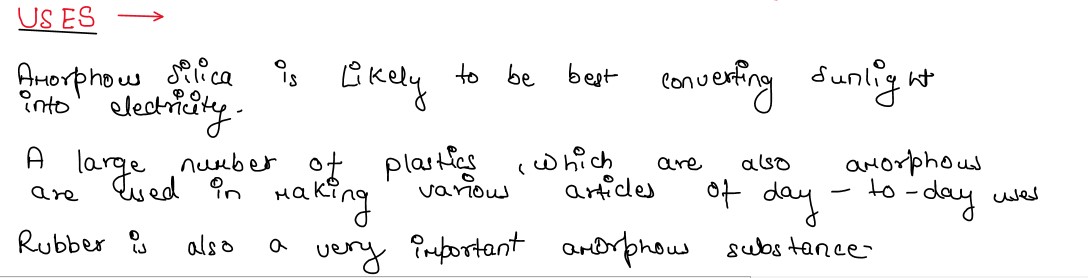 USES →
Amorphous Silica is Likely to be best converting sunlight
into electricity.
A large number of plastics, which are also amorphous
are used in making various articles of day-to-day uses
Rubber is also a very important amorphous substance-